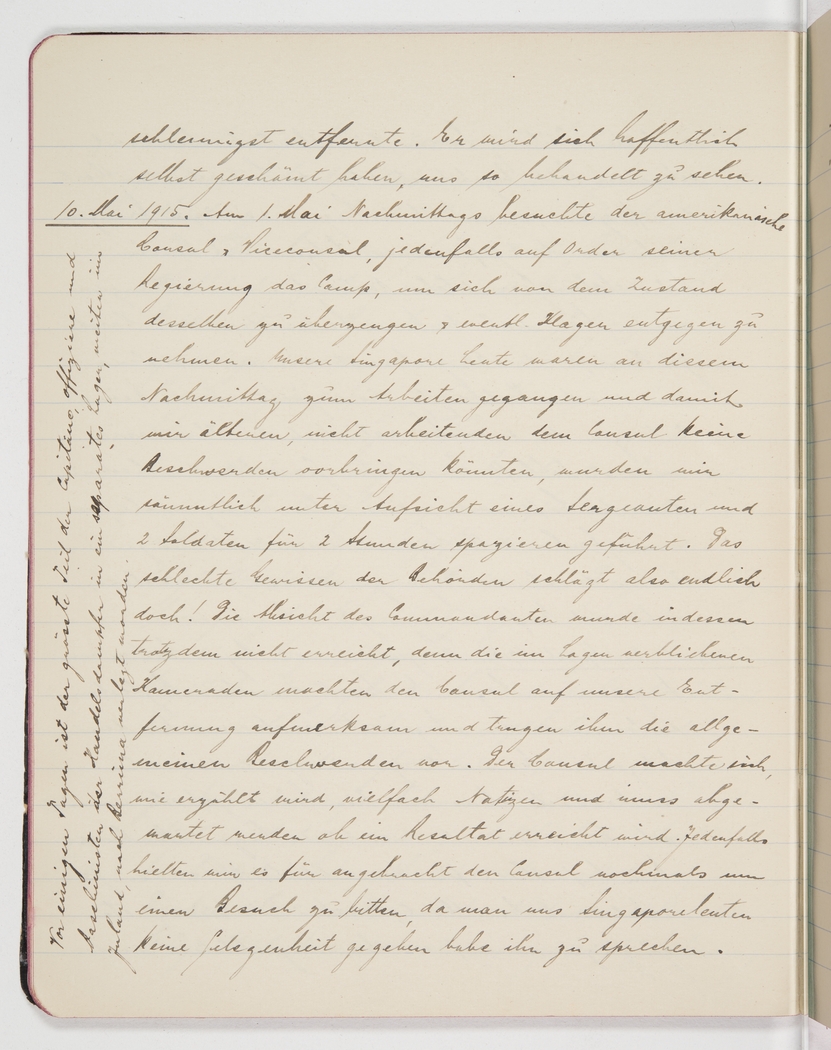 schleunigst entfernte. Er wird sich hoffentlich
selbst geschämt haben, uns so behandelt zu sehen.
10. Mai 1915. Am 1. Mai Nachmittags besuchte der amerikanische
Consul & Viceconsul, jedenfalls auf Order seiner
Regierung das Camp, um sich von dem Zustand
desselben zu überzeugen & eventl. Klagen entgegen zu
nehmen. Unsere Singapore Leute waren an diesem
Nachmittag zum Arbeiten gegangen und damit
wir älteren, nicht arbeitenden dem Consul keine
Beschwerden vorbringen könnten, wurden wir
sämmtlich unter Aufsicht eines Sergeanten und
2 Soldaten für 2 Stunden spazieren geführt. Das
schlechte Gewissen der Behörden schlägt also endlich
doch! Die Absicht des Commandanten wurde indessen
trotzdem nicht erreicht, denn die im Lager verbliebenen
Kameraden machten den Consul auf unsere Ent-
fernung aufmerksam und trugen ihm die allge-
meinen Beschwerden vor. Der Consul machte sich,
wie erzählt wird, vielfach Notizen und muss abge-
wartet werden ob ein Resultat erreicht wird. Jedenfalls
hielten wir es für angebracht den Consul nochmals um
einen Besuch zu bitten, da man uns Singaporeleuten
keine Gelegenheit gegeben habe ihn zu sprechen.
Vor einigen Tagen ist der grösste Teil der Capitäne, Offiziere und
Maschinisten der Handelsdampfer in ein separates Lager, weiter im
Inland, nach Berrima verlegt worden.